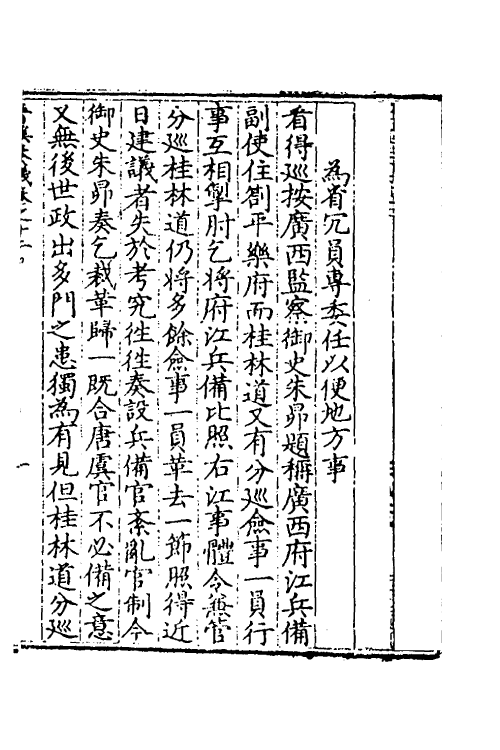 為省冗員專委任以便地方事
看得巡按廣西監察御史朱昴題稱廣西府江兵備
副使住劄平樂府而桂林道又有分巡僉事一員行
事互相掣肘乞將府江兵備比照右江事體令兼管
分巡桂林道仍將多餘僉事一員革去一節照得近
日建議者失於考究徃徃奏設兵備官紊亂官制今
御史朱昴奏乞裁革歸一既合唐虞官不必備之意
又無後世政出多門之患獨為有見但桂林道分巡